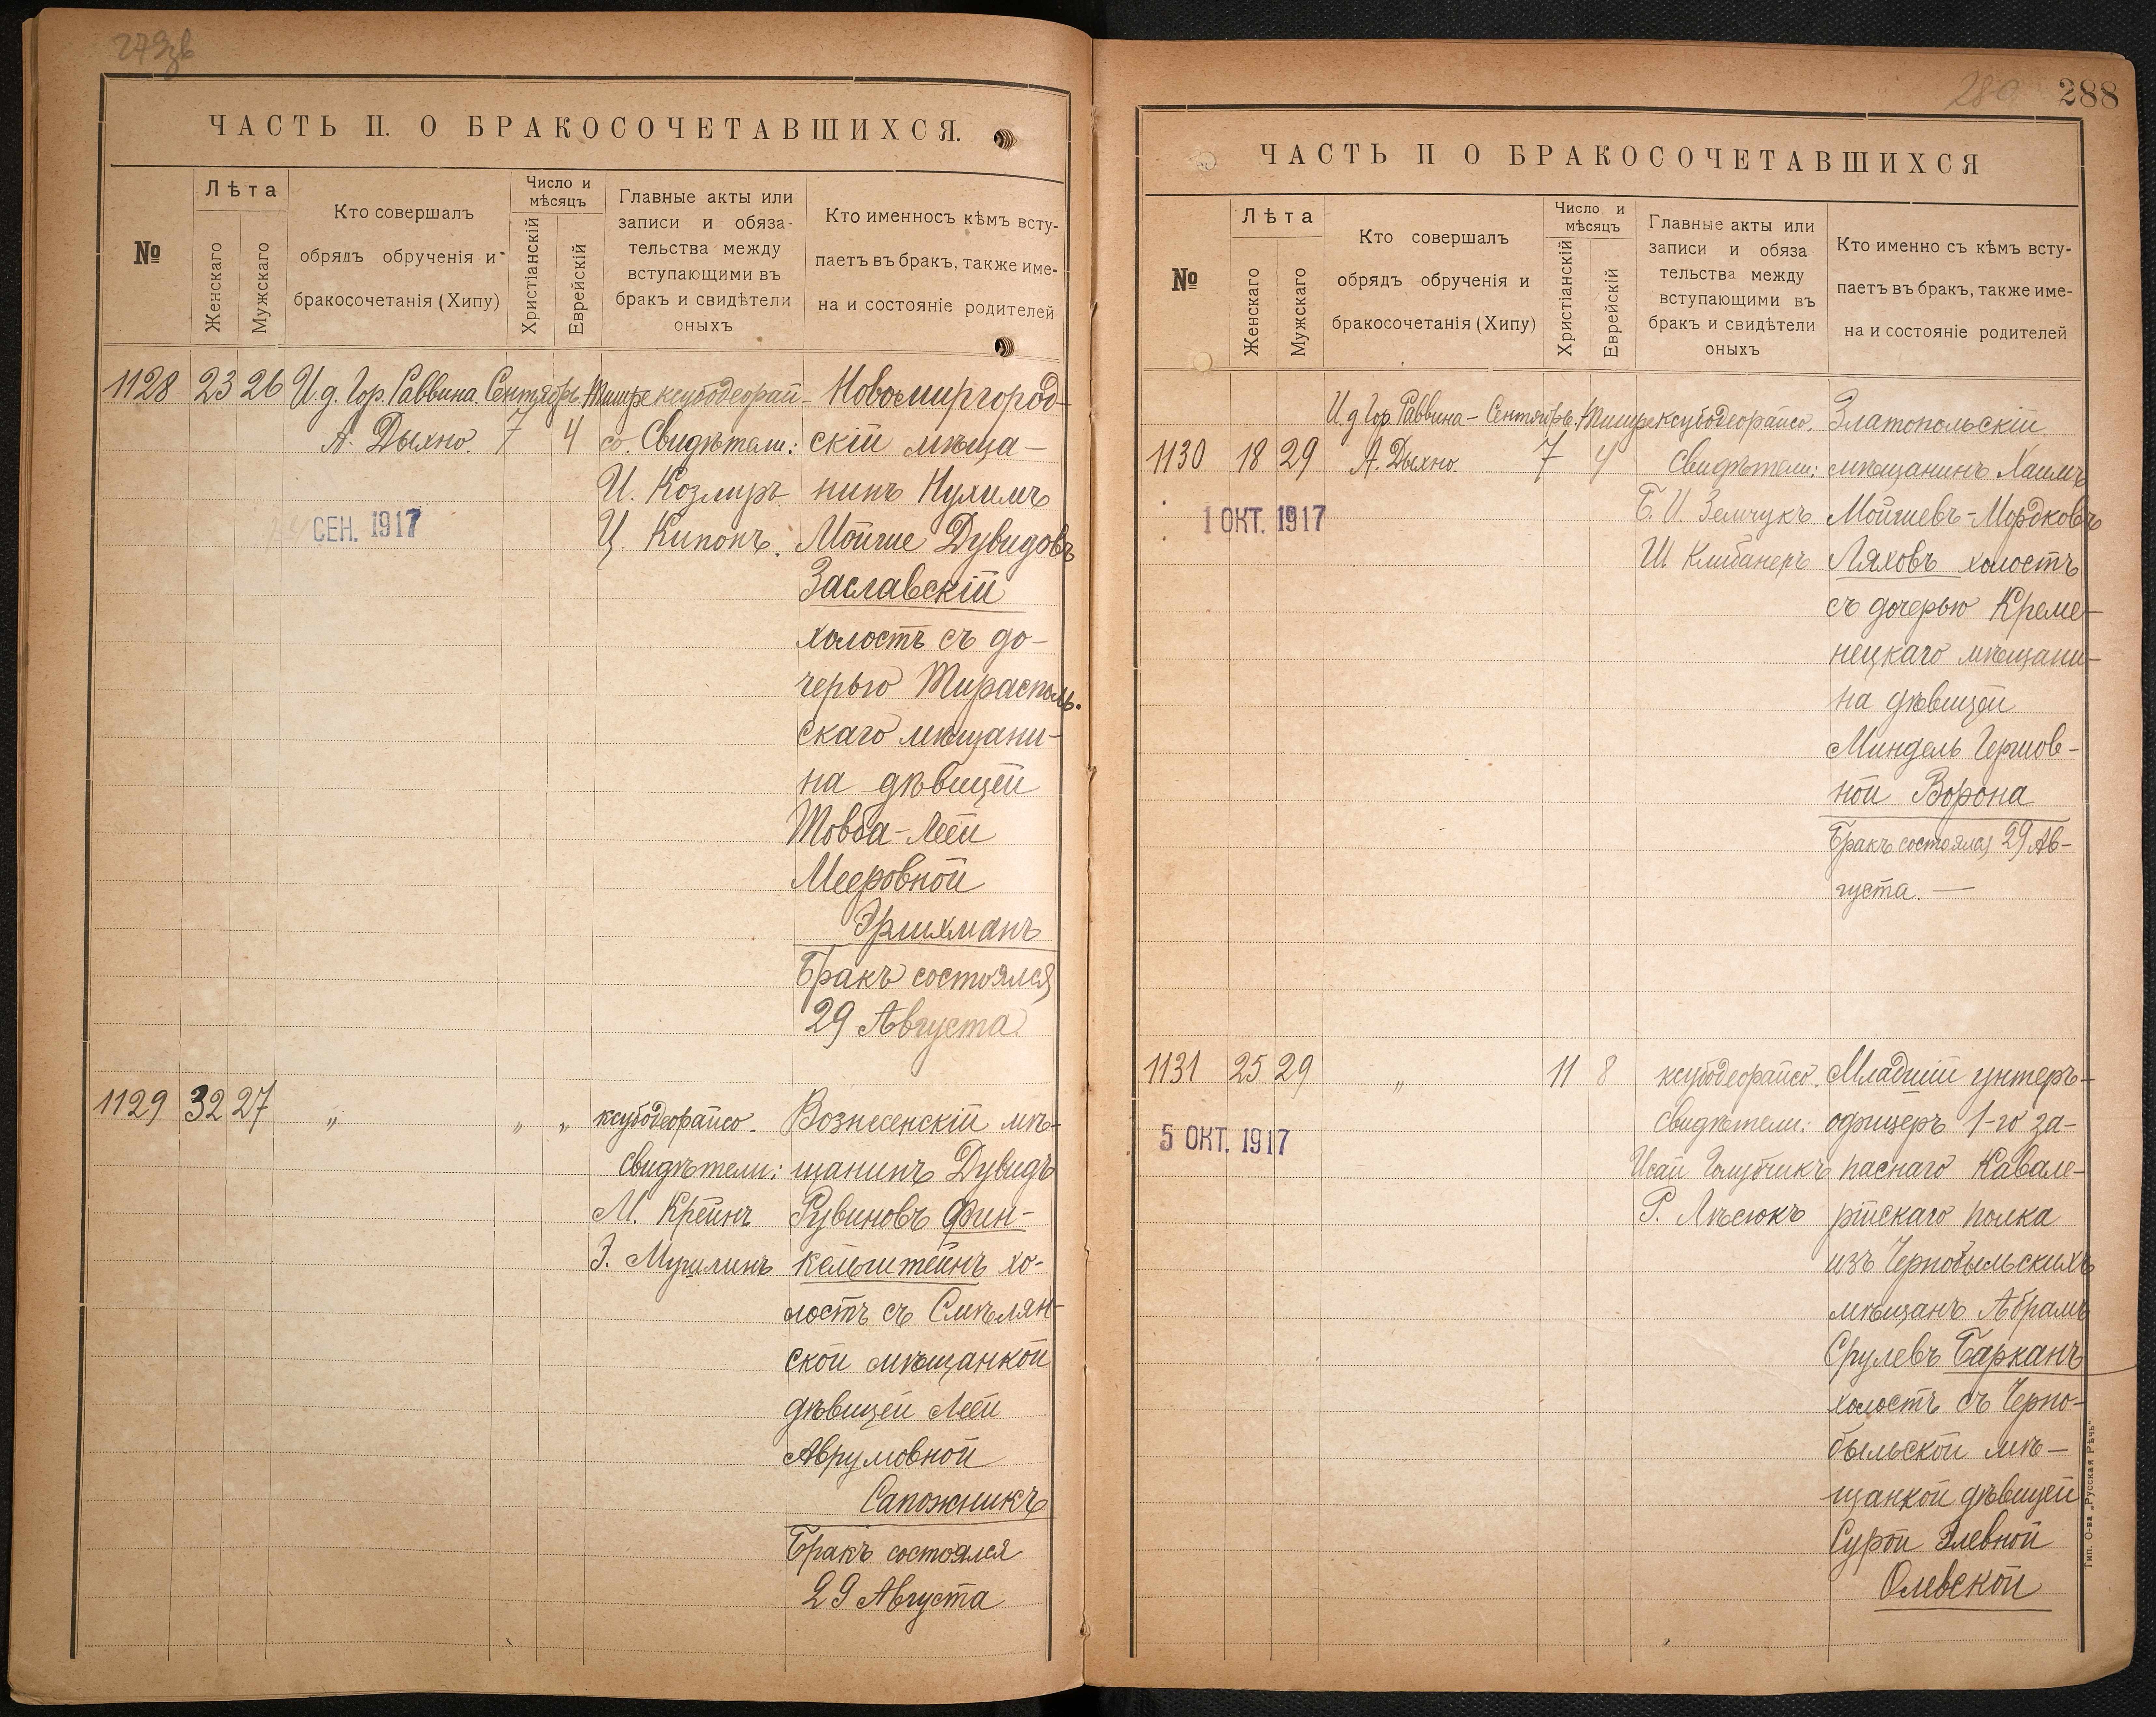 ЧАСТЬ II. О БРАКОСОЧЕТАВШИХСЯ.
№
Лѣта
Женскаго
Мужскаго
Кто совершалъ
обрядъ обрученія и
бракосочетанія (Хипу)
Число и
мѣсяцъ
Христіанскій
Еврейскій
Главные акты или
записи и обяза-
тельства между
вступающими въ
бракъ и свидѣтели
оныхъ
Кто именносъ кѣмъ всту-
паетъ въ бракъ, также име-
на и состояніе родителей
1128 23 26 И д. Гор. Раввина. Сентябрь. Тишре ксубодеорай-
А. Дыхно. 7 4 со. Свидѣтели:
И. Козлиръ
Ц. Кипонъ.
СЕН. 1917
Новомиргород-
скій мѣща-
нинъ Нухимъ
Мойше Дувидовъ
Заславскій
холостъ съ до-
черью Тирасполь-
скаго мѣщани-
на дѣвицей
Товба-Леей
Мееровной
Эрлихманъ
Бракъ состоялся
29 Августа
1129 32 27 „ „ „ ксубодеорайсо.
свидѣтели:
М. Крейнъ
Э. Мугилинъ
Вознесенскій мѣ-
щанинъ Дувидъ
Рувиновъ Фин-
кельштейнъ хо-
лостъ съ Смѣлян-
ской мѣщанкой
дѣвицей Леей
Аврумовной
Сапожникъ
Бракъ состоялся
29 Августа
280 288
ЧАСТЬ II О БРАКОСОЧЕТАВШИХСЯ
№
Лѣта
Женскаго
Мужскаго
Кто совершалъ
обрядъ обрученія и
бракосочетанія (Хипу)
Число и
мѣсяцъ
Христіанскій
Еврейскій
Главные акты или
записи и обяза
тельства между
вступающими въ
бракъ и свидѣтели
оныхъ
Кто именно съ кѣмъ всту-
паетъ въ бракъ, также име-
на и состояніе родителей
И д Гор. Раввина - Сентябрь. Тишре ксубодеорайсо.
1130 18 29 А. Дыхно. 7 4 Свидѣтели:
Б. И. Земчукъ
Ш Клибанеръ
1 ОКТ. 1917
Златопольскій
мѣщанинъ Хаимъ
Мойшевъ-Мордковъ
Ляховъ холостъ
съ дочерью Креме-
нецкаго мѣщани-
на дѣвицей
Миндель Гершов-
ной Ворона
Бракъ состоялся 29 Ав-
густа. —
1131 25 29 „ 11 8 ксубодеорайсо.
свидѣтели:
Исай Голубчикъ
Р. Лѣсюкъ
5 ОКТ. 1917
Младшій унтеръ-
офицеръ 1-го за-
паснаго Кавале-
рійскаго полка
изъ Чернобыльскихъ
мѣщанъ Абрамъ
Срулевъ Барканъ
холостъ съ Черно-
быльской мѣ-
щанкой дѣвицей
Сурой Элевной
Олевской
Тип. О-ва „Русская Рѣчь“.